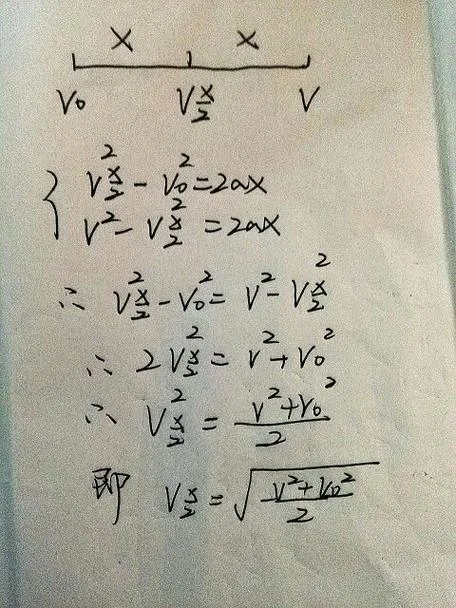 x x
V₀ V_{x/2} V
{ V_{x/2}² - V₀² = 2ax
V² - V_{x/2}² = 2ax
∴ V_{x/2}² - V₀² = V² - V_{x/2}²
∴ 2V_{x/2}² = V² + V₀²
∴ V_{x/2}² = \frac{V² + V₀²}{2}
即 V_{x/2} = \sqrt{\frac{V² + V₀²}{2}}